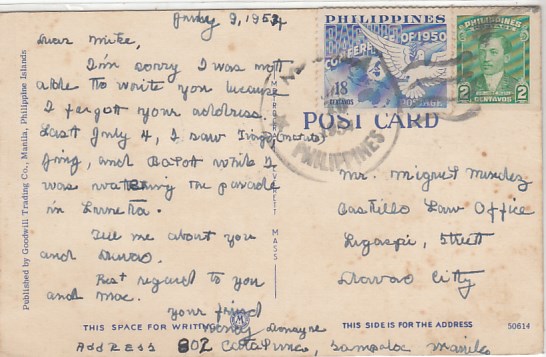 July 9, 1954
Dear Mike,
I'm sorry I was not
able to write you because
I forgot your address.
Last July 4, I saw
and Balot while I
was watching the parade
in Luneta.
Tell me about you
and Davao.
Best regard to you
and mac.
Your friend
ADDRESS 802 Catalina, Sampaloc Manila
PHILIPPINES
CONFERENCE OF 1950
18
CENTAVOS
POSTAGE
PHILIPPINES
2 2
CENTAVOS
PHILIPPINES
POST CARD
Mr. Miguel Mendez
Castillo Law Office
Legaspi, Street
Davao City
Published by Goodwill Trading Co., Manila, Philippine Islands
EVERETT MASS
THIS SPACE FOR WRITING
M
THIS SIDE IS FOR THE ADDRESS
50614